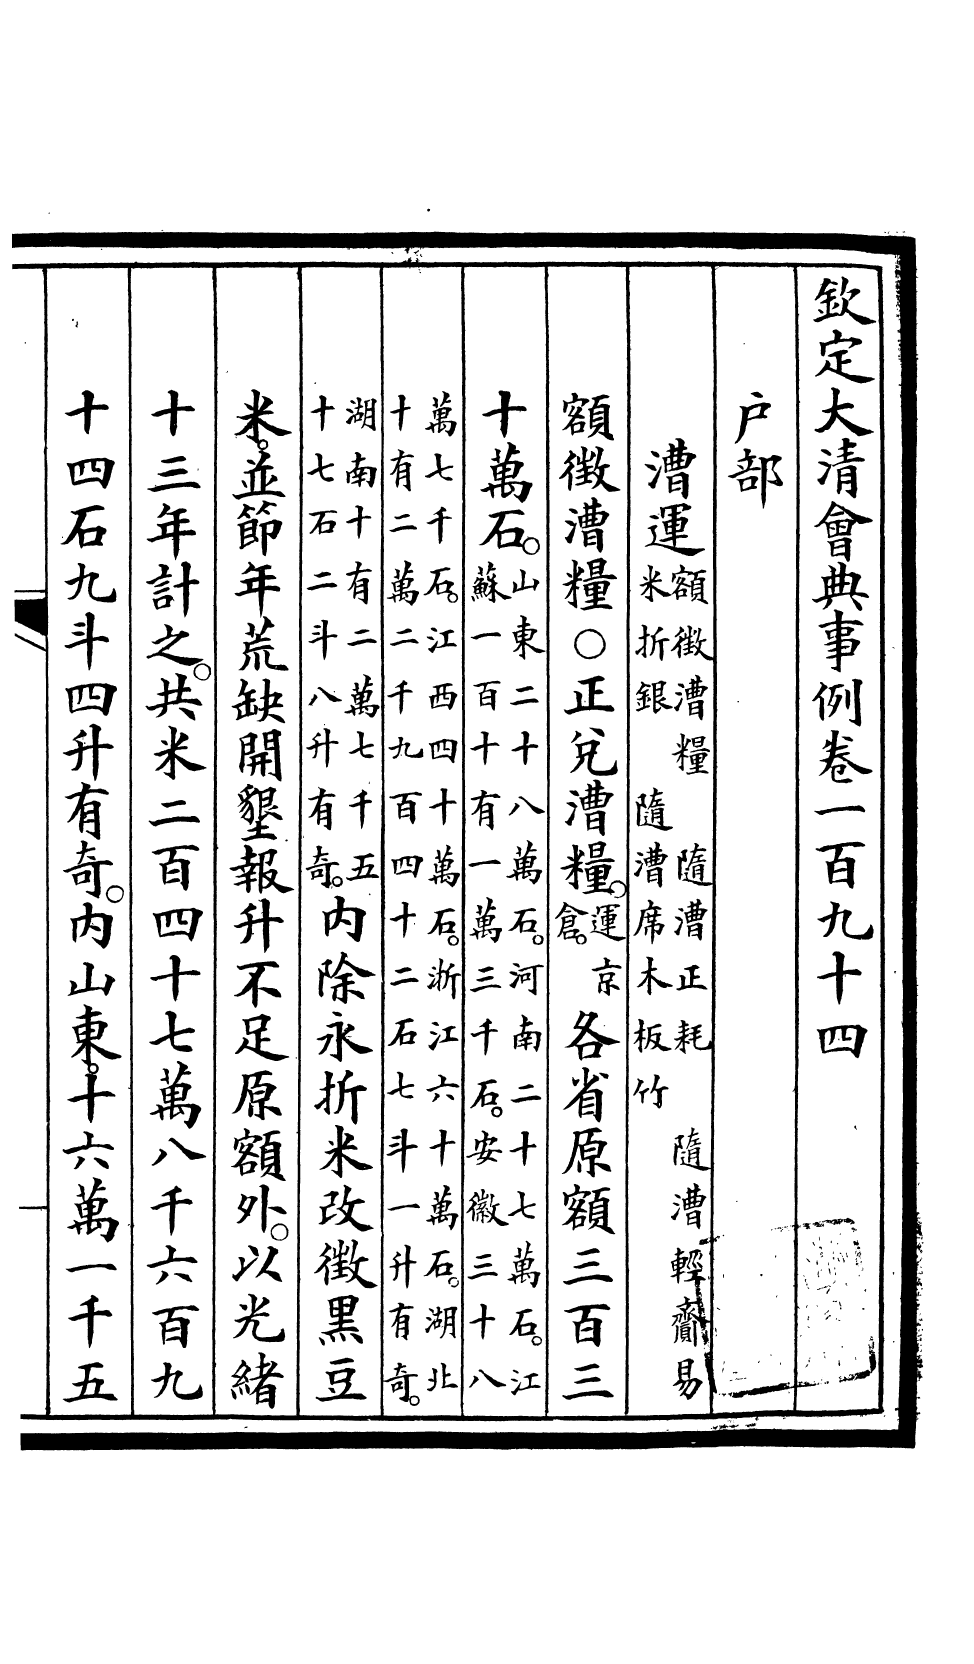 欽定大清會典事例卷一百九十四
戶部
漕運額徵漕糧 隨漕正耗 隨漕輕齎易米折銀 隨漕席木板竹
額徵漕糧○正兌漕糧。運京倉。各省原額三百三
十萬石。山東二十八萬石。河南二十七萬石。江蘇一百十有一萬三千石。安徽三十八
萬七千石。江西四十萬石。浙江六十萬石。湖北十有二萬二千九百四十二石七斗一升有奇。
湖南十有二萬七千五十七石二斗八升有奇。內除永折米改徵黑豆
米。並節年荒缺開墾報升不足原額外。以光緒
十三年計之。共米二百四十七萬八千六百九
十四石九斗四升有奇。內山東。十六萬一千五